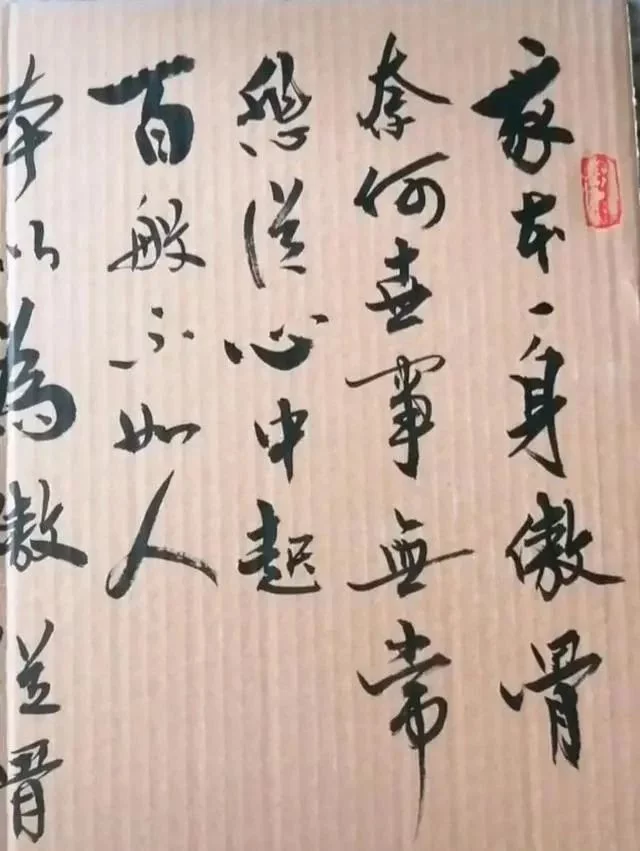 家本一身傲骨
奈何世事無常
愁從心中起
百般不如人
本以為傲從骨